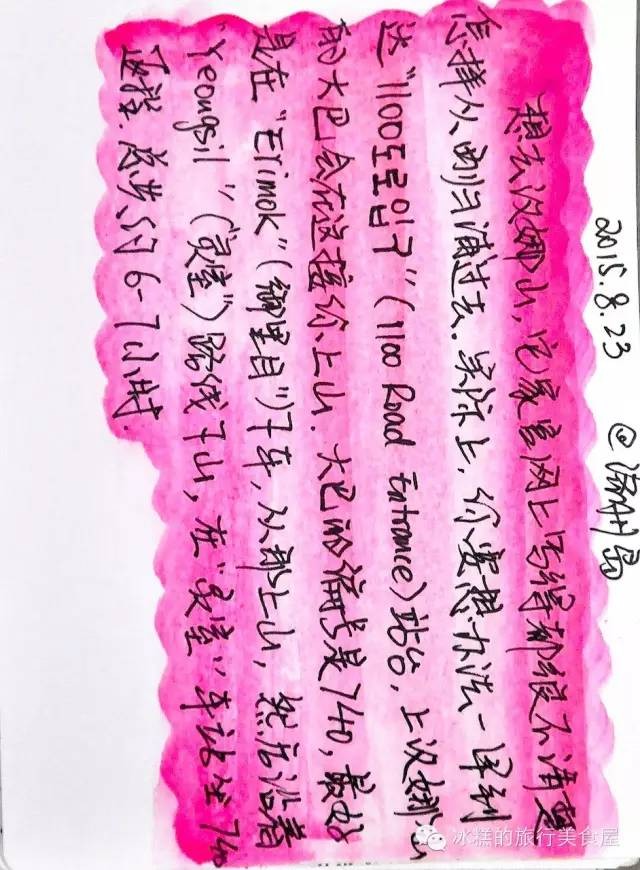 2015.8.23 @济州岛
想去汉娜山,它家官网上写得都很不清楚
怎样从西归浦过去.实际上,你要想办法一到
达"1100도로입구"(1100 Road Entrance)站台,上汉娜山
的大巴会在这接你上山.大巴的编号是740,最好
是在"Erimok"(御里目")下车,从那上山,然后沿着
"Yeongsil"("灵室")路线下山,在"灵室"车站坐740
返程.约6-7小时.
冰糕的旅行美食屋